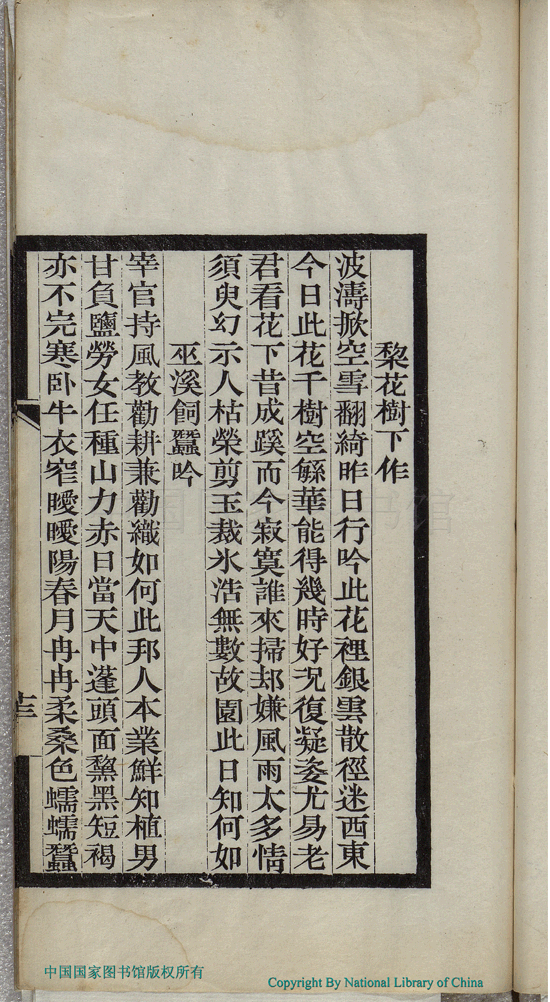 棃花樹下作
波濤掀空雪翻綺昨日行吟此花裡銀雲散徑迷西東
今日此花千樹空緐華能得幾時好況復凝姿尤易老
君看花下昔成蹊而今寂寞誰來掃却嫌風雨太多情
須臾幻示人枯榮剪玉裁氷浩無數故園此日知何如
巫溪飼蠶吟
宰官持風敎勸耕兼勸織如何此邦人本業鮮知植男
甘負鹽勞女任種山力赤日當天中蓬頭面黧黑短褐
亦不完寒臥牛衣窄曖曖陽春月冉冉柔桑色蠕蠕蠶
十三
中国国家图书馆版权所有
Copyright By National Library of China